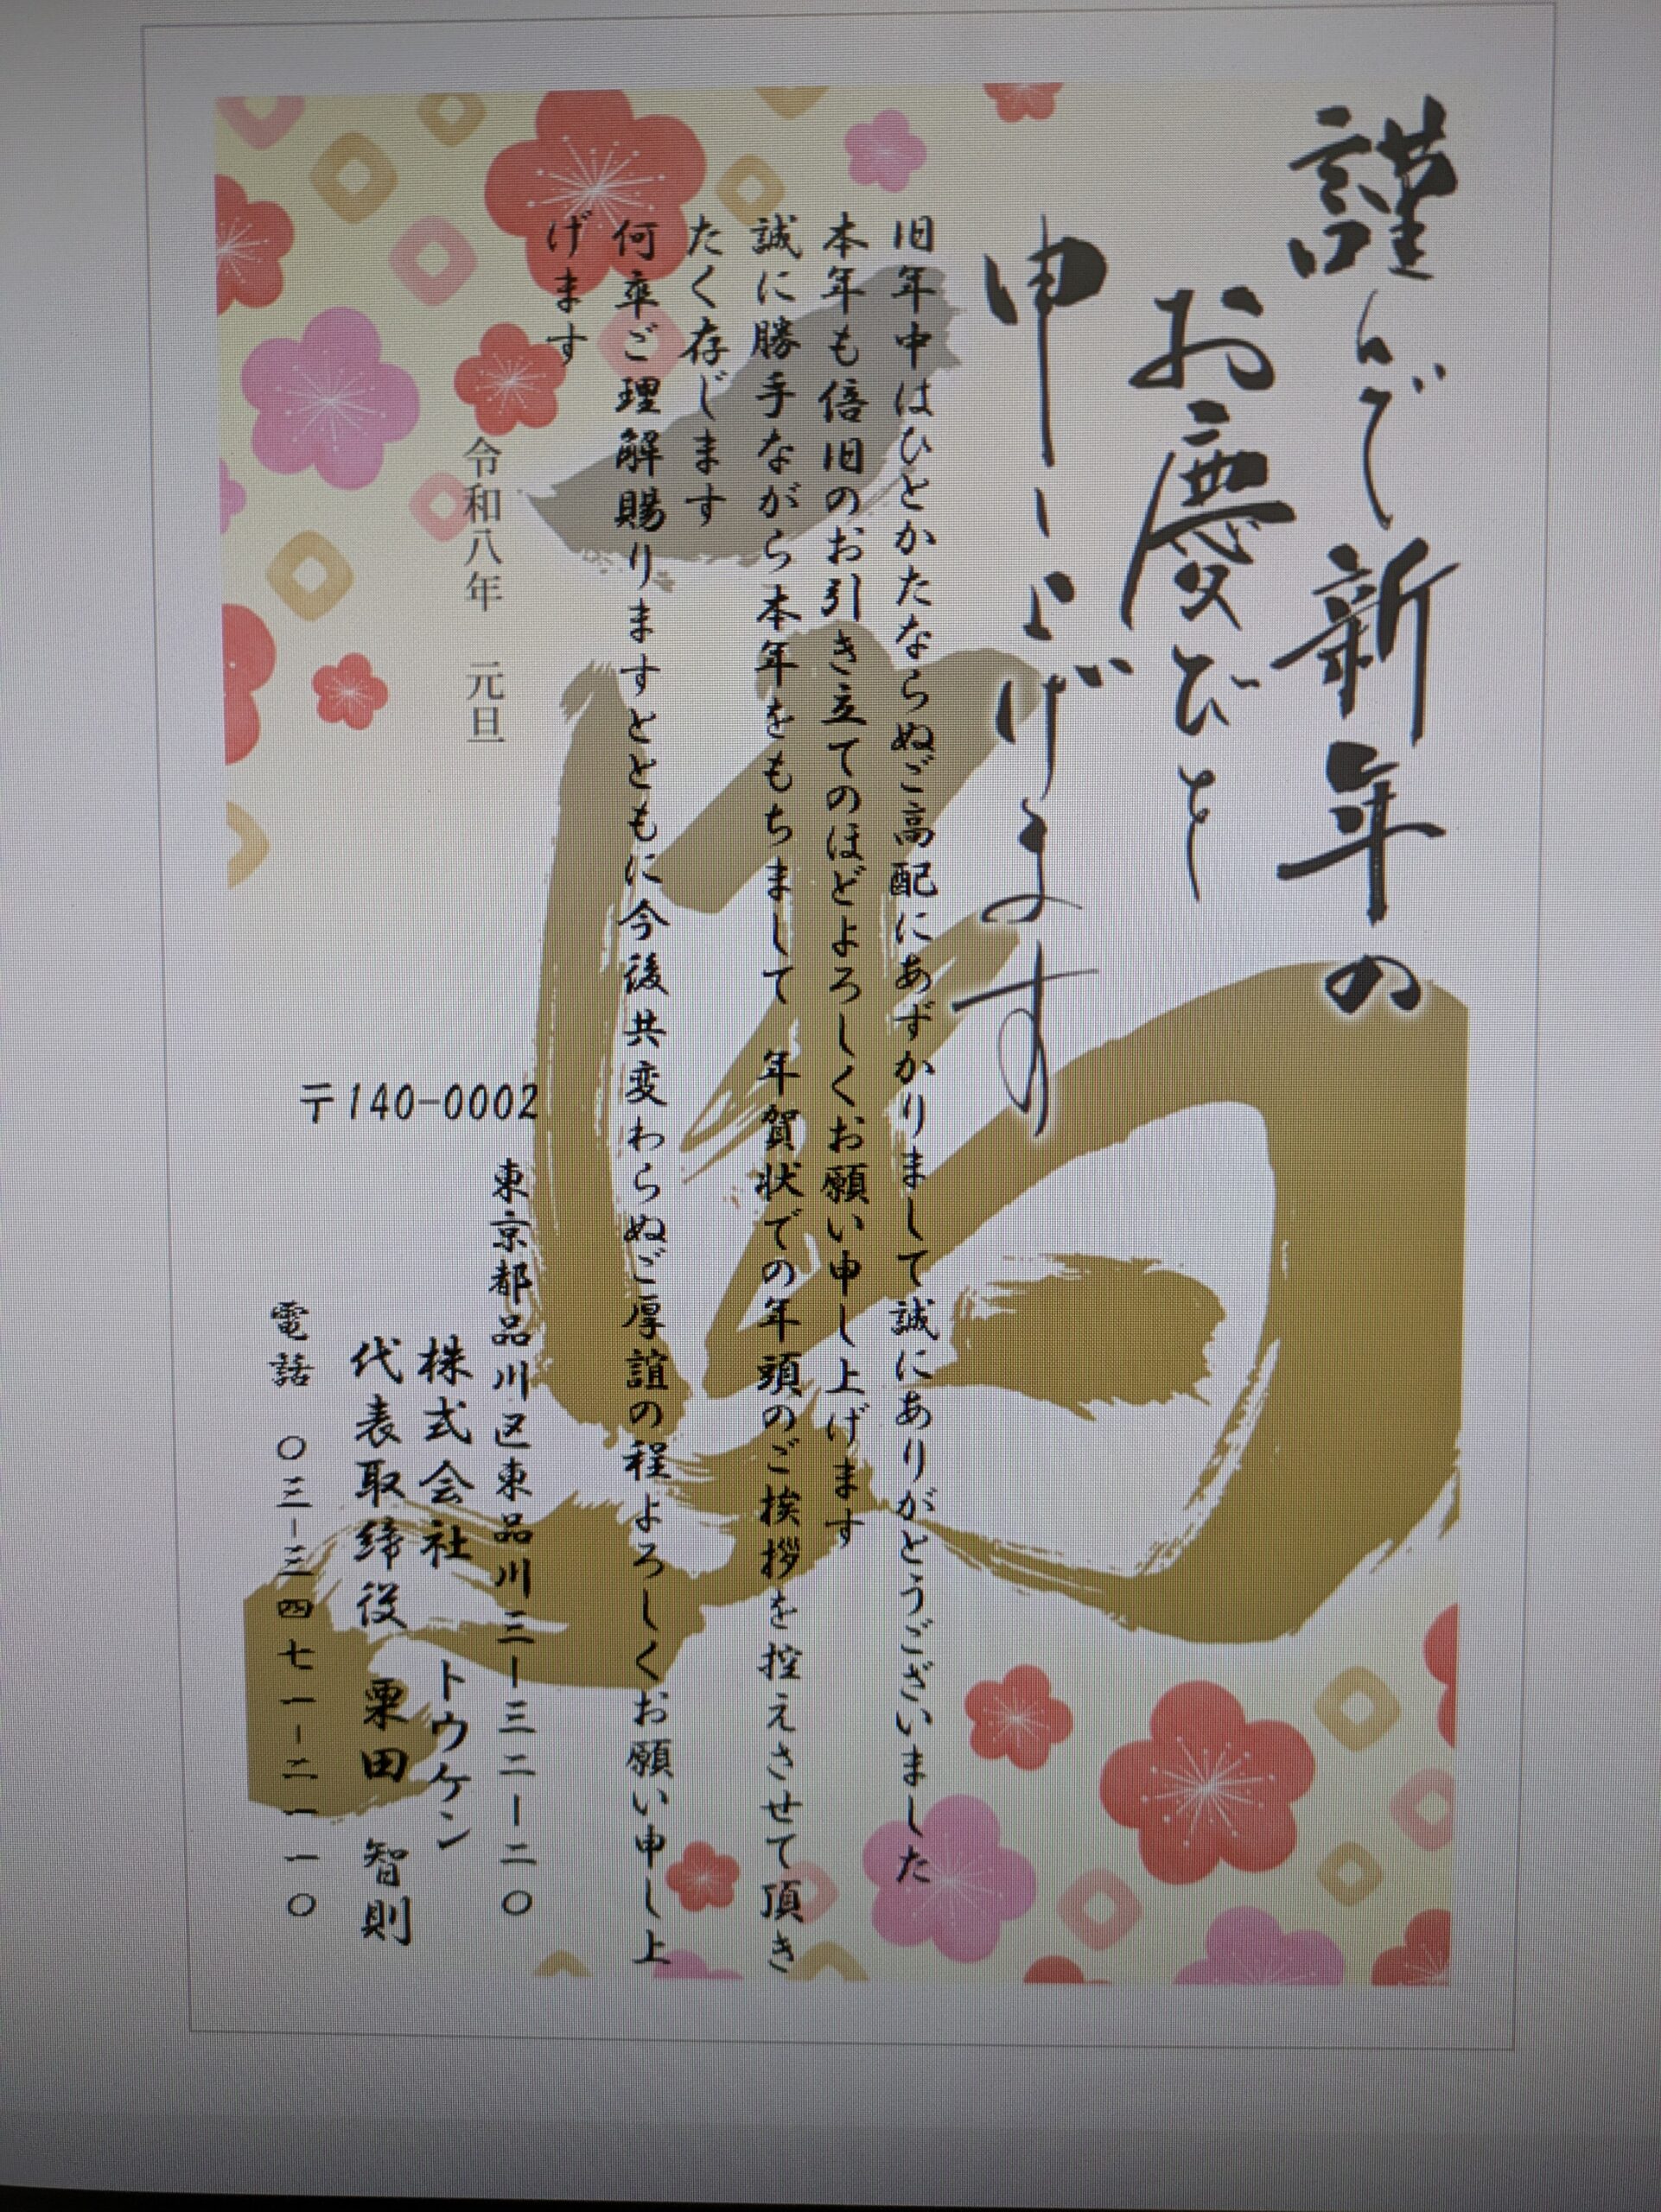 謹んで新年の
お慶びを
申し上げます
旧年中はひとかたならぬご高配にあずかりまして誠にありがとうございました
本年も倍旧のお引き立てのほどよろしくお願い申し上げます
誠に勝手ながら本年をもちまして 年賀状での年頭のご挨拶を控えさせて頂き
たく存じます
何卒ご理解賜りますとともに今後共変わらぬご厚誼の程よろしくお願い申し上
げます
令和八年 元旦
〒140-0002
東京都品川区東品川三-三二-二〇
株式会社 トウケン
代表取締役 栗田 智則
電話 〇三-三四七一-二一一〇